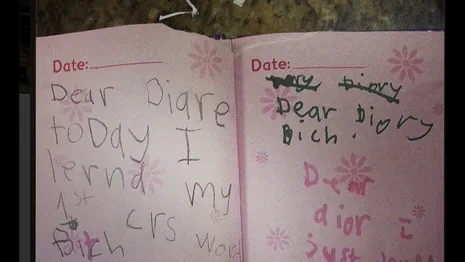 Date:
Dear Diare
toDay I
lernd my
1st crs word
Bich
Date:
Dear Diory
Bich.
Dear
dior I
just